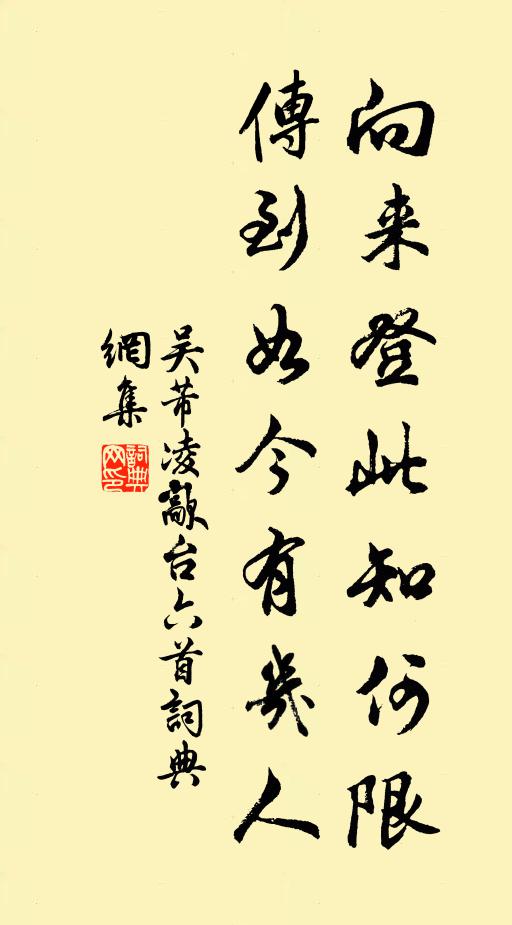 向来登此知何限
傳到如今有幾人
吴芾凌歊台六首詞典
網集
詞典
网印